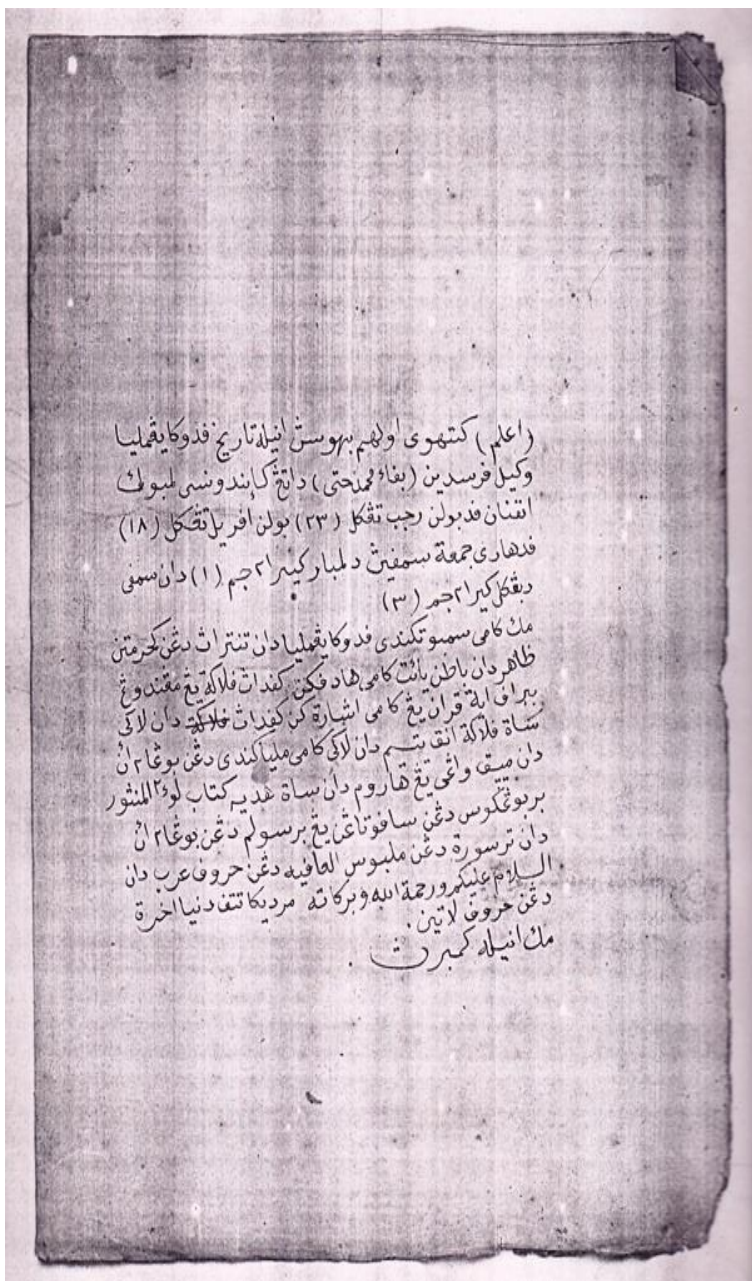 (اعلم) كتهوي اولهم بهوسڽ انيله تاريخ فدوك يڠمليا
وكيل فرسدين (بڤاء محمد حتى) داتڠ ك ايندونسي لمبوك
انتنان فدبولن رجب تڠكل (٢٣) بولن افريل تڠكل (١٨)
فدهاري جمعة سمفين دلمبار كيرا٢ جم (١) دان سمفي
دبڠكل كيرا٢ جم (٣)
مك كامي سمبوتكندي فدوك يڠمليا دان تنتراڽ دڠن كحرمتن
ظاهر دان باطن يائت كامي هادفكن كفداڽ فلاكة يڠ مڠندوڠ
ببراف اية قران يڠ كامي اشارة كن كفداڽ فلاكة دان لاكي
ساة فلاكة انق يتيم دان لاكي كامي ملياكندي دڠن بوڠا٢ان
دان ميڽق واڠي يڠ هاروم دان ساة هديه كتاب لوءلؤ المنثور
بربوڠكوس دڠن سافوتاڠن يڠ برسولم دڠن بوڠا٢ان
دان ترسورة دڠن ملبوس العافيه دڠن حروف عرب دان
السلام عليكم ورحمة الله وبركاته مرديكا تتف دنيا اخرة
دڠن حروف لاتين.
مك انيله كمبرڽ.